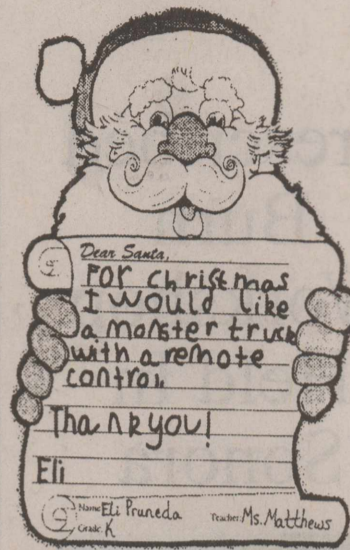 Dear Santa,
For christmas
I would like
a monster truck
with a remote
control.
Thank you!
Eli
Name: Eli Pruneda Teacher: Ms. Matthews
Grade: K